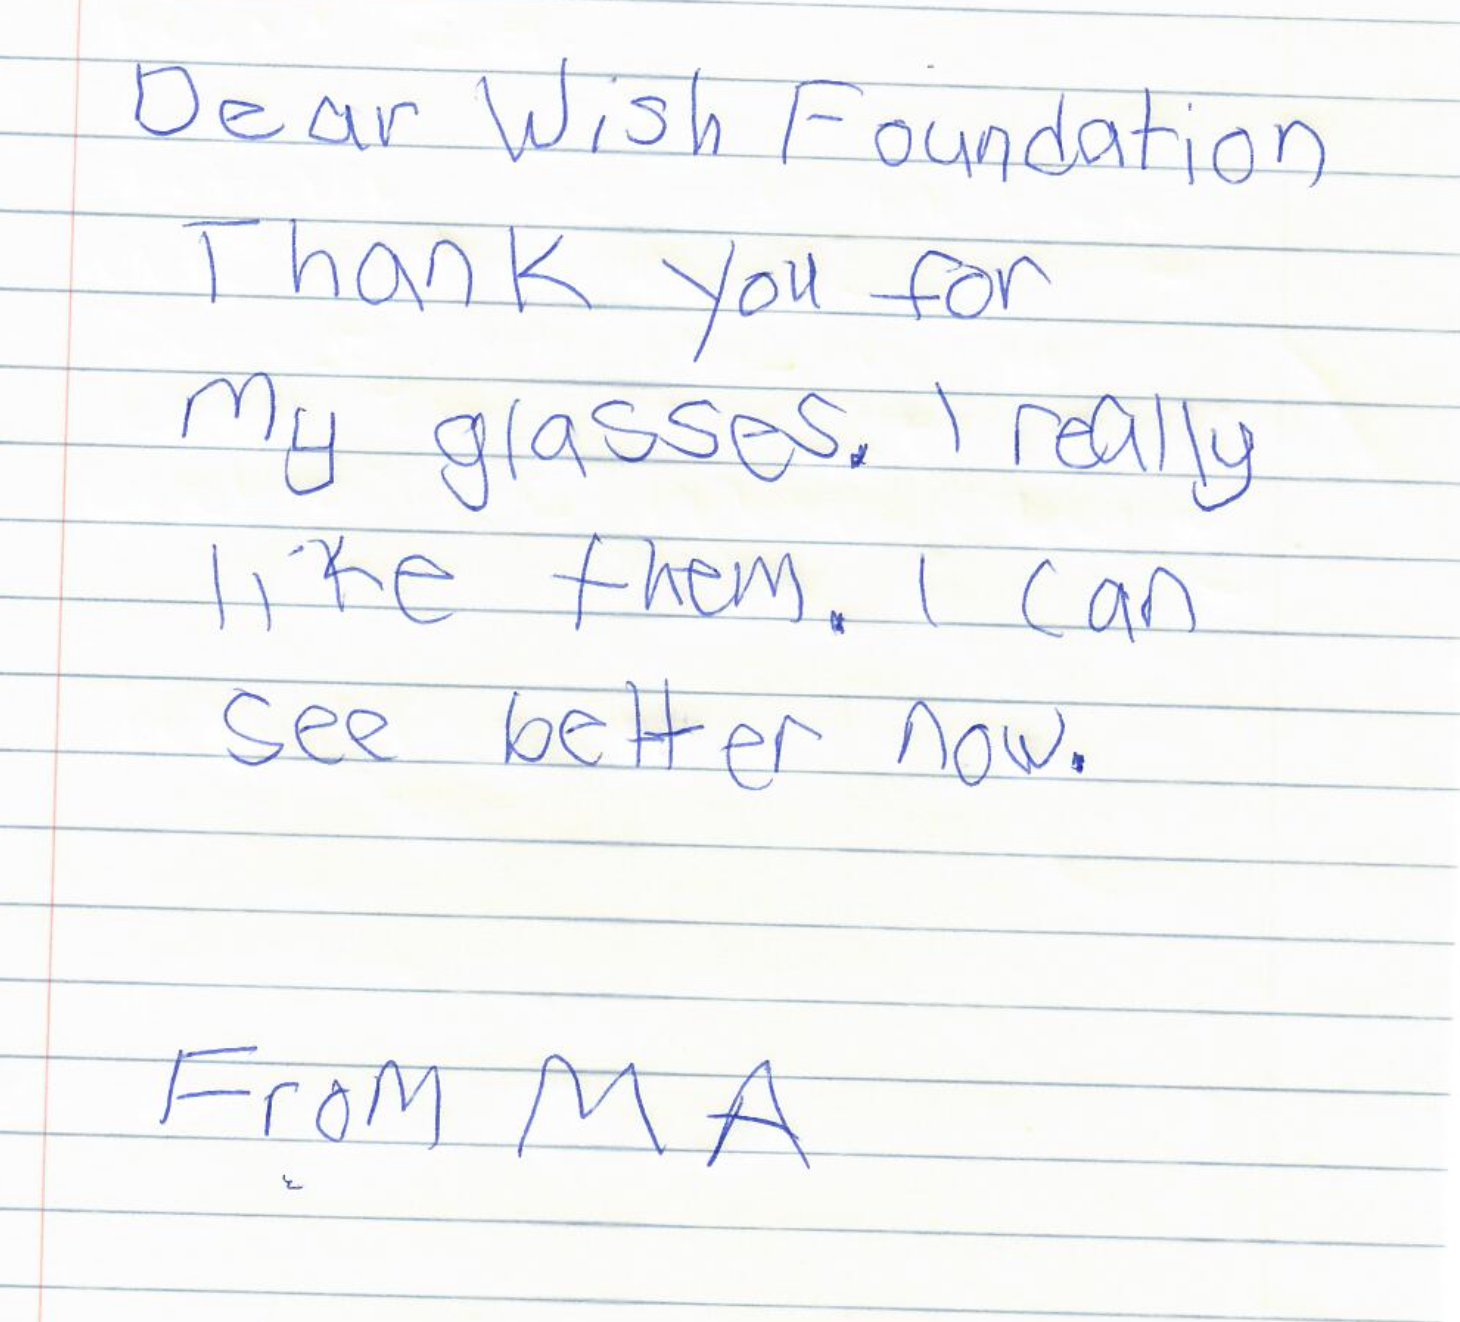 Dear Wish Foundation
Thank you for
My glasses. I really
like them. I can
see better now.
From M A